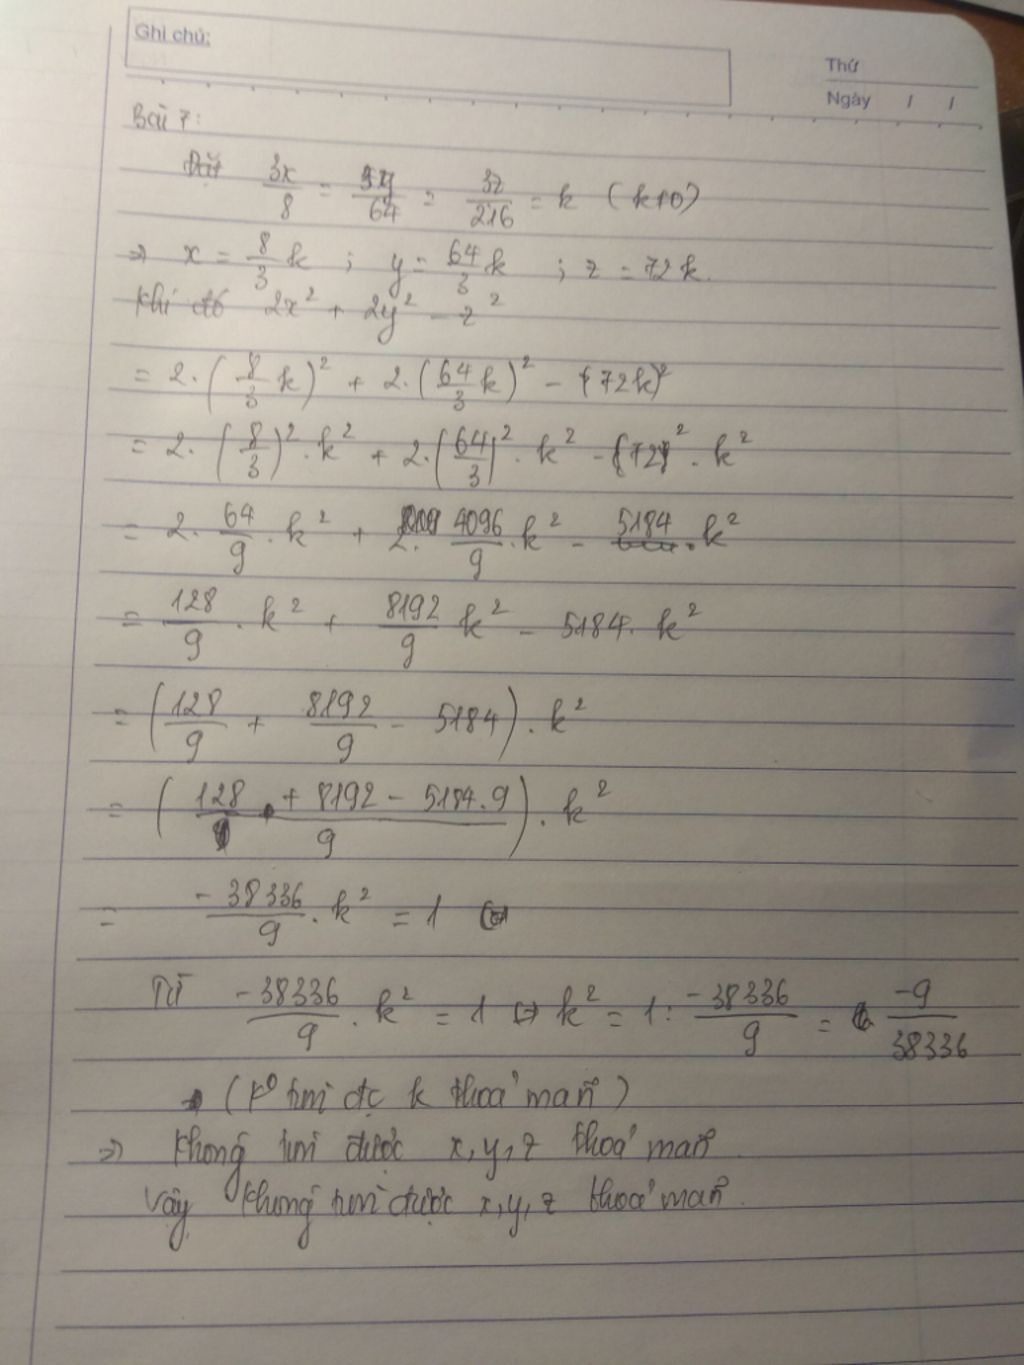 Ghi chú:
Thứ
Ngày / /
Bài 7:
Đặt 3x/8 = 3y/64 = 3z/216 = k (k≠0)
⇒ x = 8/3 k ; y = 64/3 k ; z = 72k.
Khi đó 2x² + 2y² - z²
= 2.(8/3 k)² + 2.(64/3 k)² - (72k)²
= 2.(8/3)².k² + 2.(64/3)².k² - (72)².k²
= 2.64/9.k² + 2.4096/9.k² - 5184.k²
= 128/9.k² + 8192/9 k² - 5184.k²
= (128/9 + 8192/9 - 5184).k²
= (128 + 8192 - 5184.9/9).k²
= -38336/9.k² = 1
Từ -38336/9.k² = 1 ⇔ k² = 1:-38336/9 = -9/38336
→ (K⁰ tìm đc k thoả mãn)
⇒ Không tìm được x,y,z thoả mãn.
Vậy không tìm được x,y,z thoả mãn.